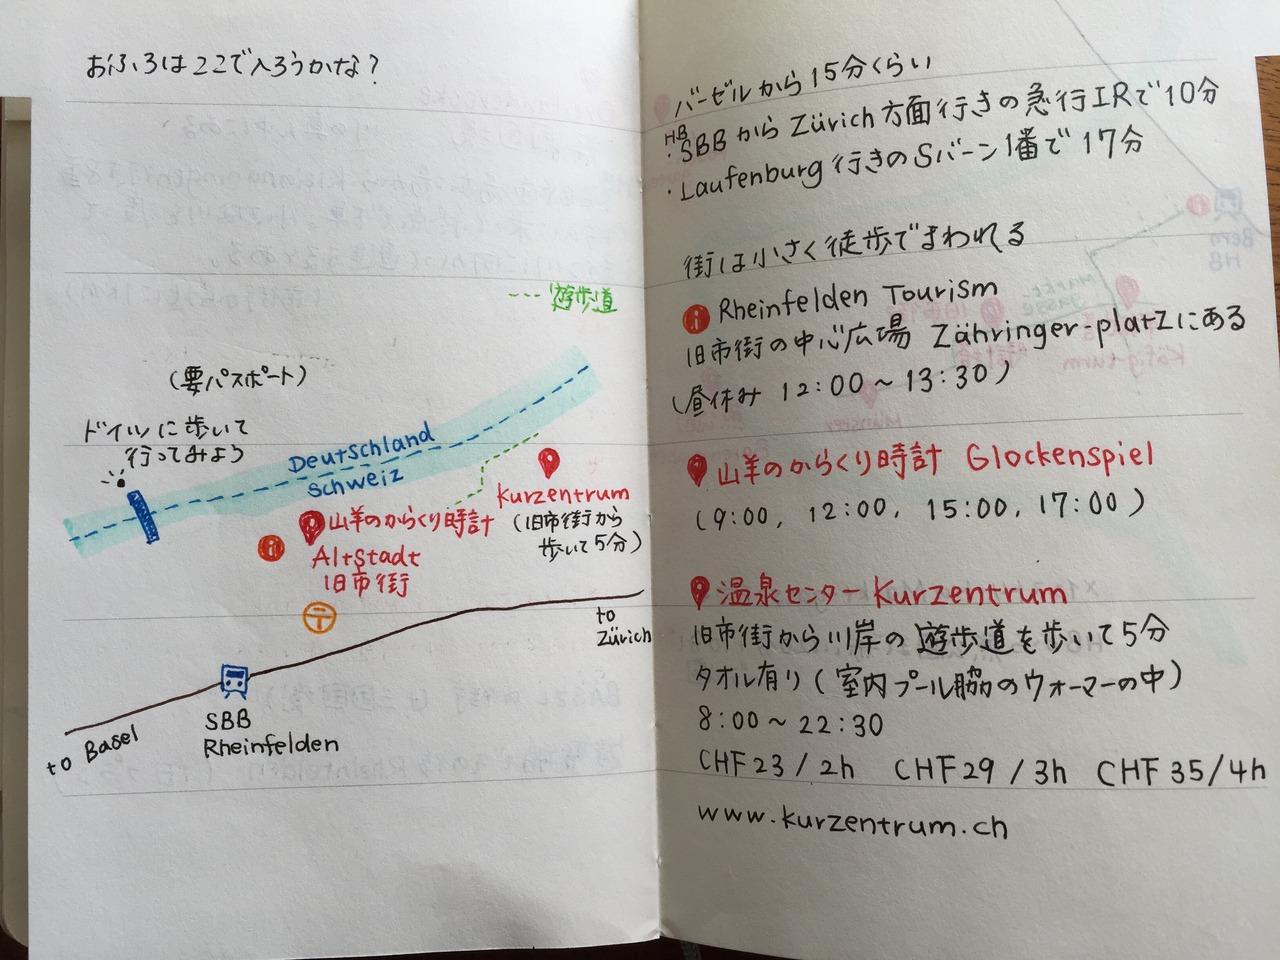 おふろはここで入ろうかな?
---遊歩道
(要パスポート)
ドイツに歩いて
行ってみよう
Deutschland
Schweiz
山羊のからくり時計
Altstadt
旧市街
Kurzentrum
(旧市街から
歩いて5分)
〒
to
Zürich
SBB
Rheinfelden
to Basel
バーゼルから15分くらい
HB
・SBBからZürich方面行きの急行IRで10分
・Laufenburg行きのSバーン1番で17分
街は小さく徒歩でまわれる
i Rheinfelden Tourism
旧市街の中心広場 Zähringer-platzにある
(昼休み 12:00~13:30)
山羊のからくり時計 Glockenspiel
(9:00, 12:00, 15:00, 17:00)
温泉センターKurzentrum
旧市街から川岸の遊歩道を歩いて5分
タオル有り(室内プール脇のウォーマーの中)
8:00~22:30
CHF23/2h CHF29/3h CHF35/4h
www.kurzentrum.ch